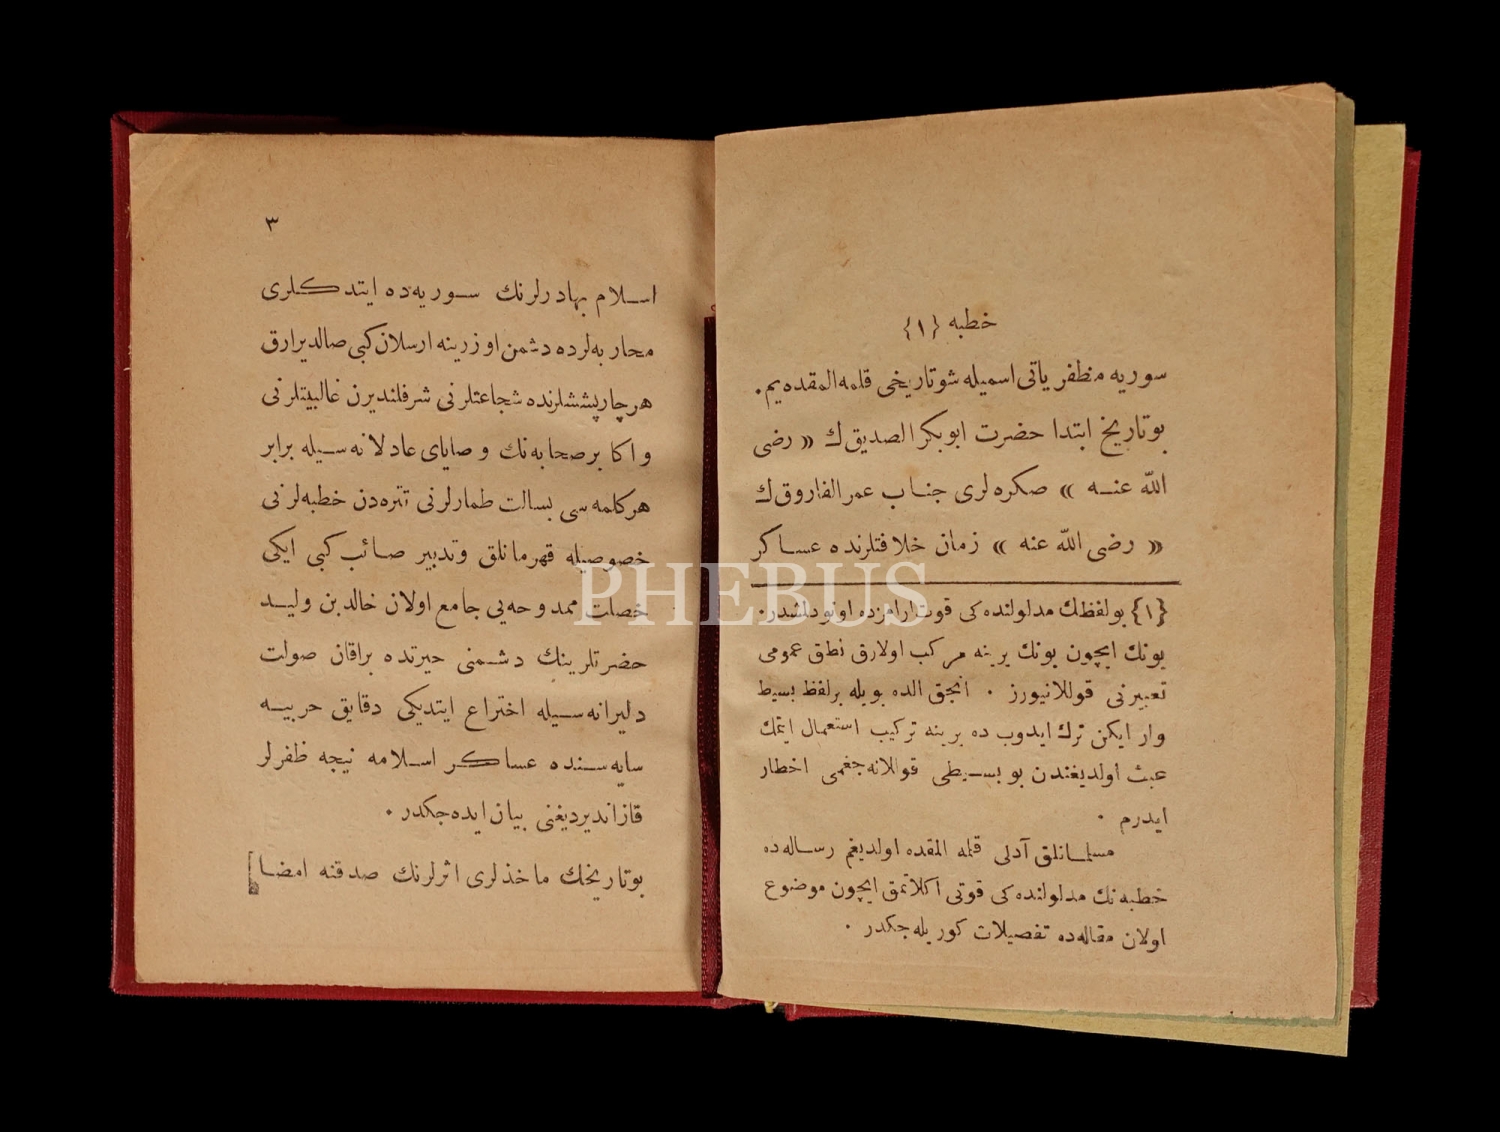 خطبه {١}
سوريه مظفرياتى اسميله شوتاريخى قلمه المقده‌يم.
بوتاريخ ابتدا حضرت ابوبكر الصديق‌ك « رضى
الله عنه » صكره‌لرى جناب عمر الفاروق‌ك
« رضى الله عنه » زمان خلافتلرنده عساكر
{١} بولفظك مدلولنده‌كى قوت ارامزده اونودلمشدر.
بونك ايچون بونك يرينه مركب اولارق نطق عمومى
تعبيرنى قوللانيورز . انجق الده بويله برلفظ بسيط
وار ايكن ترك ايدوب ده يرينه تركيب استعمال ايتمك
عبث اولديغندن بو بسيطى قوللانه‌جغمى اخطار
ايدرم .
مسلمانلق آدلى قلمه المقده اولديغم رساله‌ده
خطبه‌نك مدلولنده‌كى قوتى اكلاتمق ايچون موضوع
اولان مقاله‌ده تفصيلات كوريله‌جكدر .
٣
اسلام بهادرلرنك سوريه‌ده ايتدكلرى
محاربه‌لرده دشمن اوزرينه ارسلان كبى صالديرارق
هرچارپششلرنده شجاعتلرنى شرفلنديرن غالبيتلرنى
و اكابر صحابه‌نك وصاياى عادلانه‌سيله برابر
هركلمه‌سى بسالت طمارلرنى تتره‌دن خطبه‌لرنى
خصوصيله قهرمانلق وتدبير صائب كبى ايكى
خصلت ممدوحه‌يى جامع اولان خالد بن وليد
حضرتلرينك دشمنى حيرتده براقان صولت
دليرانه‌سيله اختراع ايتديكى دقايق حربيه
سايه‌سنده عساكر اسلامه نيجه ظفرلر
قازانديرديغنى بيان ايده‌جكدر .
بوتاريخك ماخذلرى اثرلرنك صدقنه امضا]
PHEBUS